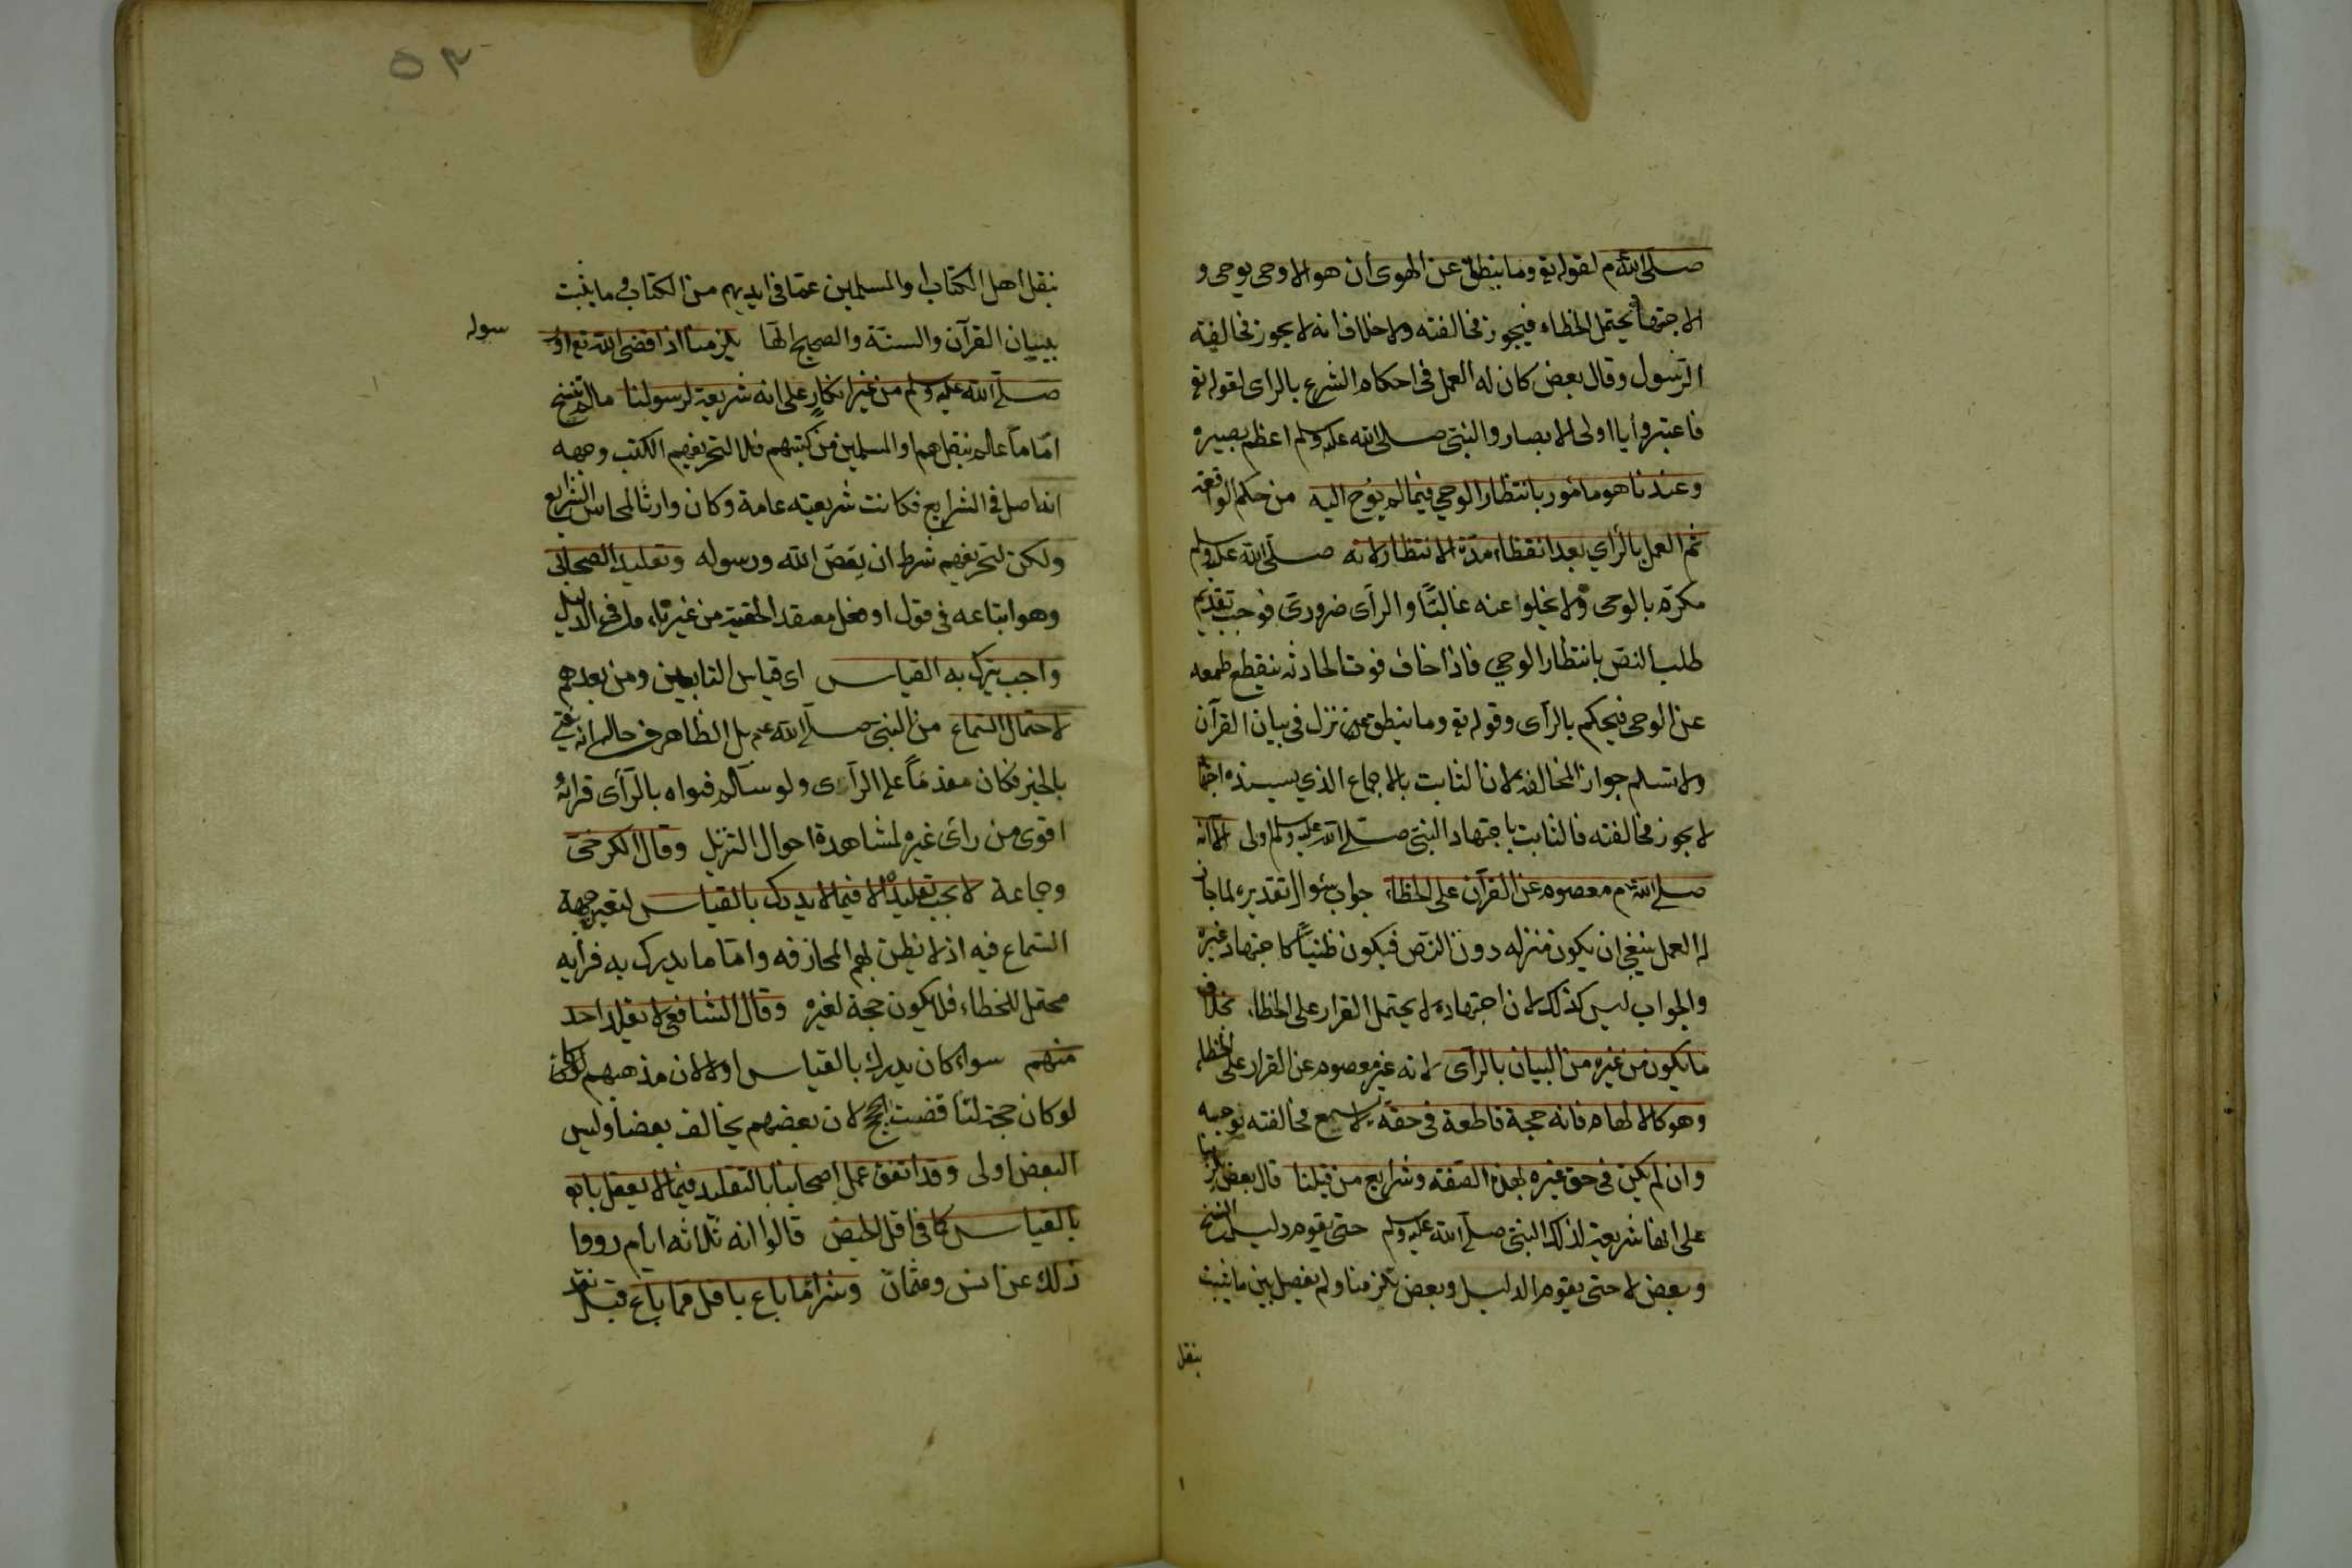 صلى الله م لقوله تع وما ينطق عن الهوى ان هو الا وحى يوحى و
الاجتهاد يحتمل الخطاء فيجوز مخالفته ولا خلاف انه لا يجوز مخالفة
الرسول وقال بعض كان له العمل فى احكام الشرع بالراى لقوله تع
فاعتبروا يا اولى الابصار والنبى صلى الله عليه وسلم اعظم بصيره
وعندنا هو مامور بانتظار الوحي فيما لم يوح اليه من حكم الواقعة
ثم العمل بالرأي بعد انقظاء مدة الانتظار لانه صلى الله عليه وسلم
مكرم بالوحى ولا يخلوا عنه غالبًا والرآى ضرورى فوجب تقديم
طلب النص بانتظار الوحي فاذا خاف فوت الحادثه ينقطع طمعه
عن الوحى فيحكم بالرآى وقوله تع وما ينطق نزل فى بيان القرآن
ولا نسلم جواز المخالفة لان الثابت بالاجماع الذي سنده اجتها
لا يجوز مخالفته فالثابت باجتهاد النبى صلى الله عليه وسلم اولى الا انه
صلى الله م معصوم عن القرآن على الخطاء جواب سؤال تقديره لما جاز
له العمل ينبغى ان يكون منزله دون النص فيكون ظنياً كاجتهاد غيره
والجواب ليس كذلك لان اجتهاده لا يحتمل القرار على الخطاء بخلاف
ما يكون من غيره من البيان بالرآى لانه غير معصوم عن القرار على الخطاء
وهو كالالهام فانه حجة قاطعة فى حقه لا يسمع مخالفته بوجه
وان لم يكن فى حق غيره بهذه الصفه وشرايع من قبلنا قال بعض يلزمنا
على انها شريعة لذلك النبى صلى الله عليه وسلم حتى يقوم دليل النسخ
وبعض لا حتى يقوم الدليل وبعض تلزمنا ولم يفصل بين ما يثبت
ينقل
٥٣
بنقل اهل الكتاب والمسلمين عما فى ايديهم من الكتاب وما يثبت
ببيان القرآن والسنة والصحيح انها يلزمنا اذا قص الله تع او
سوله
صلى الله عليه وسلم من غير انكارٍ على انه شريعة لرسولنا ما لم تنسخ
اما ما علم بنقلهم او المسلمين من كتبهم فلا لتحريفهم الكتب وجهه
انه اصل فى الشرايع فكانت شريعته عامة وكان وارثا لمحاسن الشرايع
ولكن لتحريفهم شرط ان يقص الله ورسوله وتقليد الصحابى
وهو اتباعه فى قول او فعل معتقد الحقية من غير تاءمل فى الدليل
واجب يترك به القياس اى قياس التابعين ومن بعدهم
لاحتمال السماع من النبى صلى الله عم بل الظاهر فى حاله انه يفتى
بالخبر فكان مقدمًا على الرآى ولو سلم فتواه بالرآى فرايه
اقوى من رائ غيره لمشاهدة احوال التنزيل وقال الكرخى
وجماعة لا يجب تقليده الا فيما لا يدرك بالقياس لتعين جهة
السماع فيه اذ لا يظن بهم المجازفه واما ما يدرك به فرايه
محتمل للخطاء فلا يكون حجة لغيره وقال الشافعى لا يقلد احد
منهم سواء كان يدرك بالقياس اولا لان مذهبهم
لو كان حجة لتناقضت الحجج لان بعضهم يخالف بعضا وليس
البعض اولى وقد اتفق عمل اصحابنا بالتقليد فيما لا يعقل
بالقياس كما فى اقل الحيض قالوا انه ثلاثه ايام رووا
ذلك عن انس وعثمان وشرا ما باع باقل مما باع قبل نقد